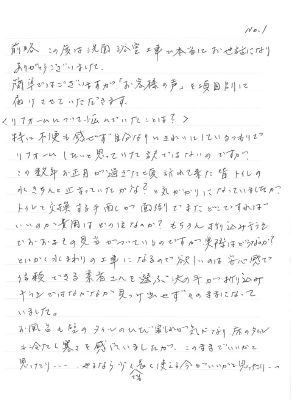 No.1
前略 この度は洗面 浴室 工事で本当にお世話になり
ありがとうございました。
簡単ではございますが「お客様の声」を項目別に
届けさせていただきます。
<リフォームについて悩んでいたことは?>
特に不便も感せず自分なりにきれいにしているつもりで
リフォームしたいと思っていた訳ではないのですが、
この数年お正月が過ぎたて
水がきちんと止まっていたかな?と気がかりになっていましたが
トイレで交換する手間しが面倒でまたどこですれば
いいのか費用はどのくらいなのか? もちろん折り込み
でおおよその見当がついているのですが実際はどうなのか?
とにかく水まわりの工事になるので欲しいのは安心感で
信頼できる業者さんを選ぶ決め手が折り込み
チラシではなかなか見つけ出せずそのままになって
いました。
お風呂も壁のタイルのひび割れが気になり 床のタイル
も冷たく寒さを感じていましたが、このままでいいかと
思ったり…… やるなら少しでも長く使える今がいいかと思ったり…